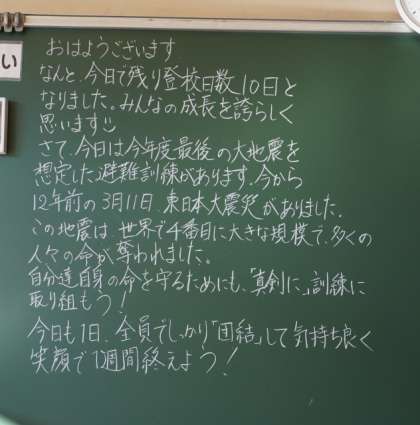 い
おはようございます
なんと、今日で残り登校日数10日と
なりました。みんなの成長を誇らしく
思います☺
さて、今日は今年度最後の大地震を
想定した避難訓練があります。今から
12年前の3月11日、東日本大震災がありました。
この地震は世界で4番目に大きな規模で、多くの
人々の命が奪われました。
自分達自身の命を守るためにも、「真剣に」訓練に
取り組もう！
今日も1日、全員でしっかり「団結」して気持ち良く
笑顔で1週間終えよう！